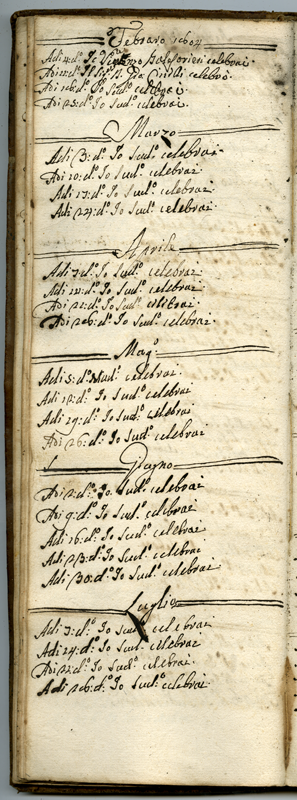 Febraro 1604
Adi 4: d.º Io Vicenzo celebrai
Adi 11: d.º celebrò
Adi 18: d.º Io Sud.º celebrai
Adi 25: d.º Io Sud.º celebrai.
Marzo
Adi 3: d.º Io Sud.º celebrai
Adi 10: d.º Io Sud.º celebrai
Adi 17: d.º Io Sud.º celebrai
Adi 24: d.º Io Sud.º celebrai
Aprile
Adi 7: d.º Io Sud.º celebrai
Adi d.º Io Sud.º celebrai
Adi 21: d.º Io Sud.º celebrai
Adi 26: d.º Io Sud.º celebrai
Mag.º
Adi 5: d.º Sud.º celebrai
Adi 12: d.º Io Sud.º celebrai
Adi 19: d.º Io Sud.º celebrai
Adi 26: d.º Io Sud.º celebrai
Giugno
Adi 2: d.º Io Sud.º celebrai
Adi 9: d.º Io Sud.º celebrai
Adi 16: d.º Io Sud.º celebrai
Adi 23: d.º Io Sud.º celebrai
Adi 30: d.º Io Sud.º celebrai
Luglio
Adi 7: d.º Io Sud.º celebrai
Adi 14: d.º Io Sud.º celebrai
Adi 21: d.º Io Sud.º celebrai
Adi 26: d.º Io Sud.º celebrai